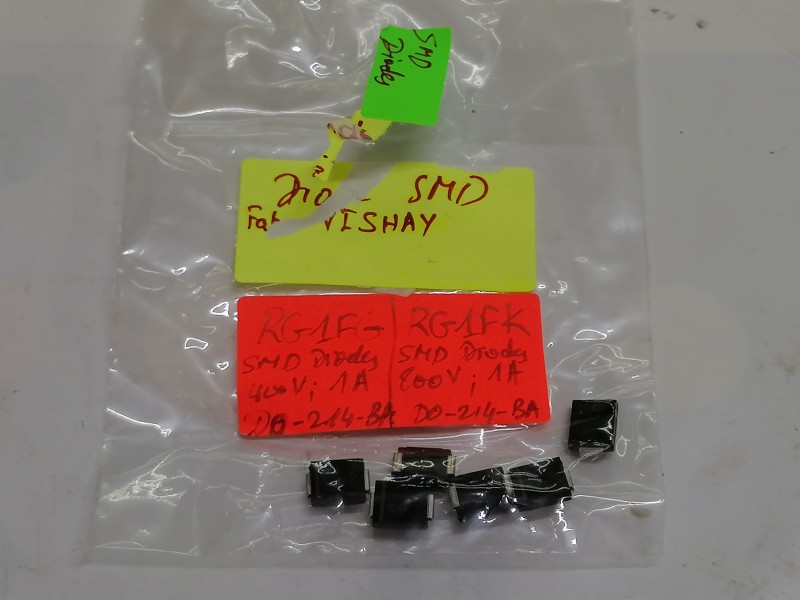 SMD
Diodes
SMD
VISHAY
RG1FG
SMD Diodes
400V; 1A
DO-214-BA
RG1FK
SMD Diodes
800V; 1A
DO-214-BA